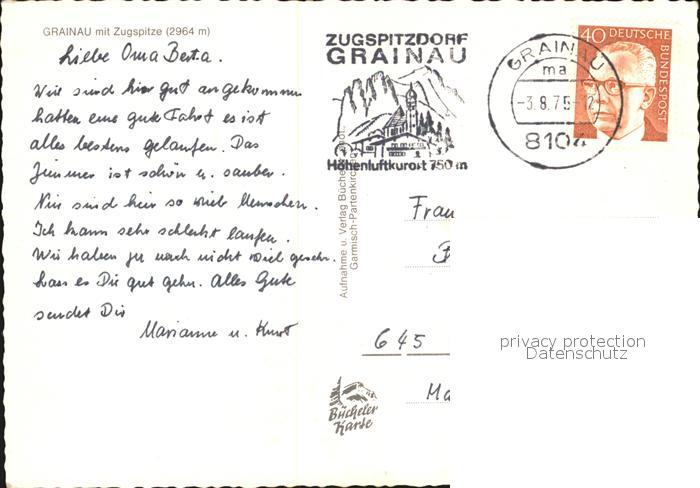 GRAINAU mit Zugspitze (2964 m)
Liebe Oma Berta.
Wir sind hier gut angekommen
hatten eine gute Fahrt es ist
alles bestens gelaufen. Das
Zimmer ist schön u. sauber.
Nur sind hier so viele Menschen.
Ich kann sehr schlecht laufen.
Wir haben ja noch nicht viel gesehn.
Lass es Dir gut gehn. Alles Gute
sendet Dir
Marianne u. Kurt
Aufnahme u. Verlag Bücheler
Garmisch-Partenkirchen
ZUGSPITZDORF
GRAINAU
Höhenluftkurort 750 m
GRAINAU
ma
-3.9.75-12
8104
40 DEUTSCHE
BUNDESPOST
Frau
645
Ma
Bücheler
Karte
privacy protection
Datenschutz